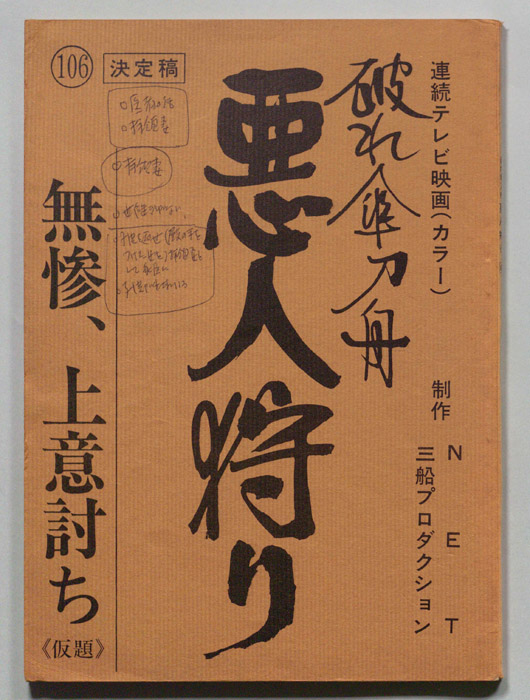 連続テレビ映画(カラー)
制作 NET
三船プロダクション
破れ傘刀舟
悪人狩り
106
決定稿
無惨、上意討ち
《仮題》